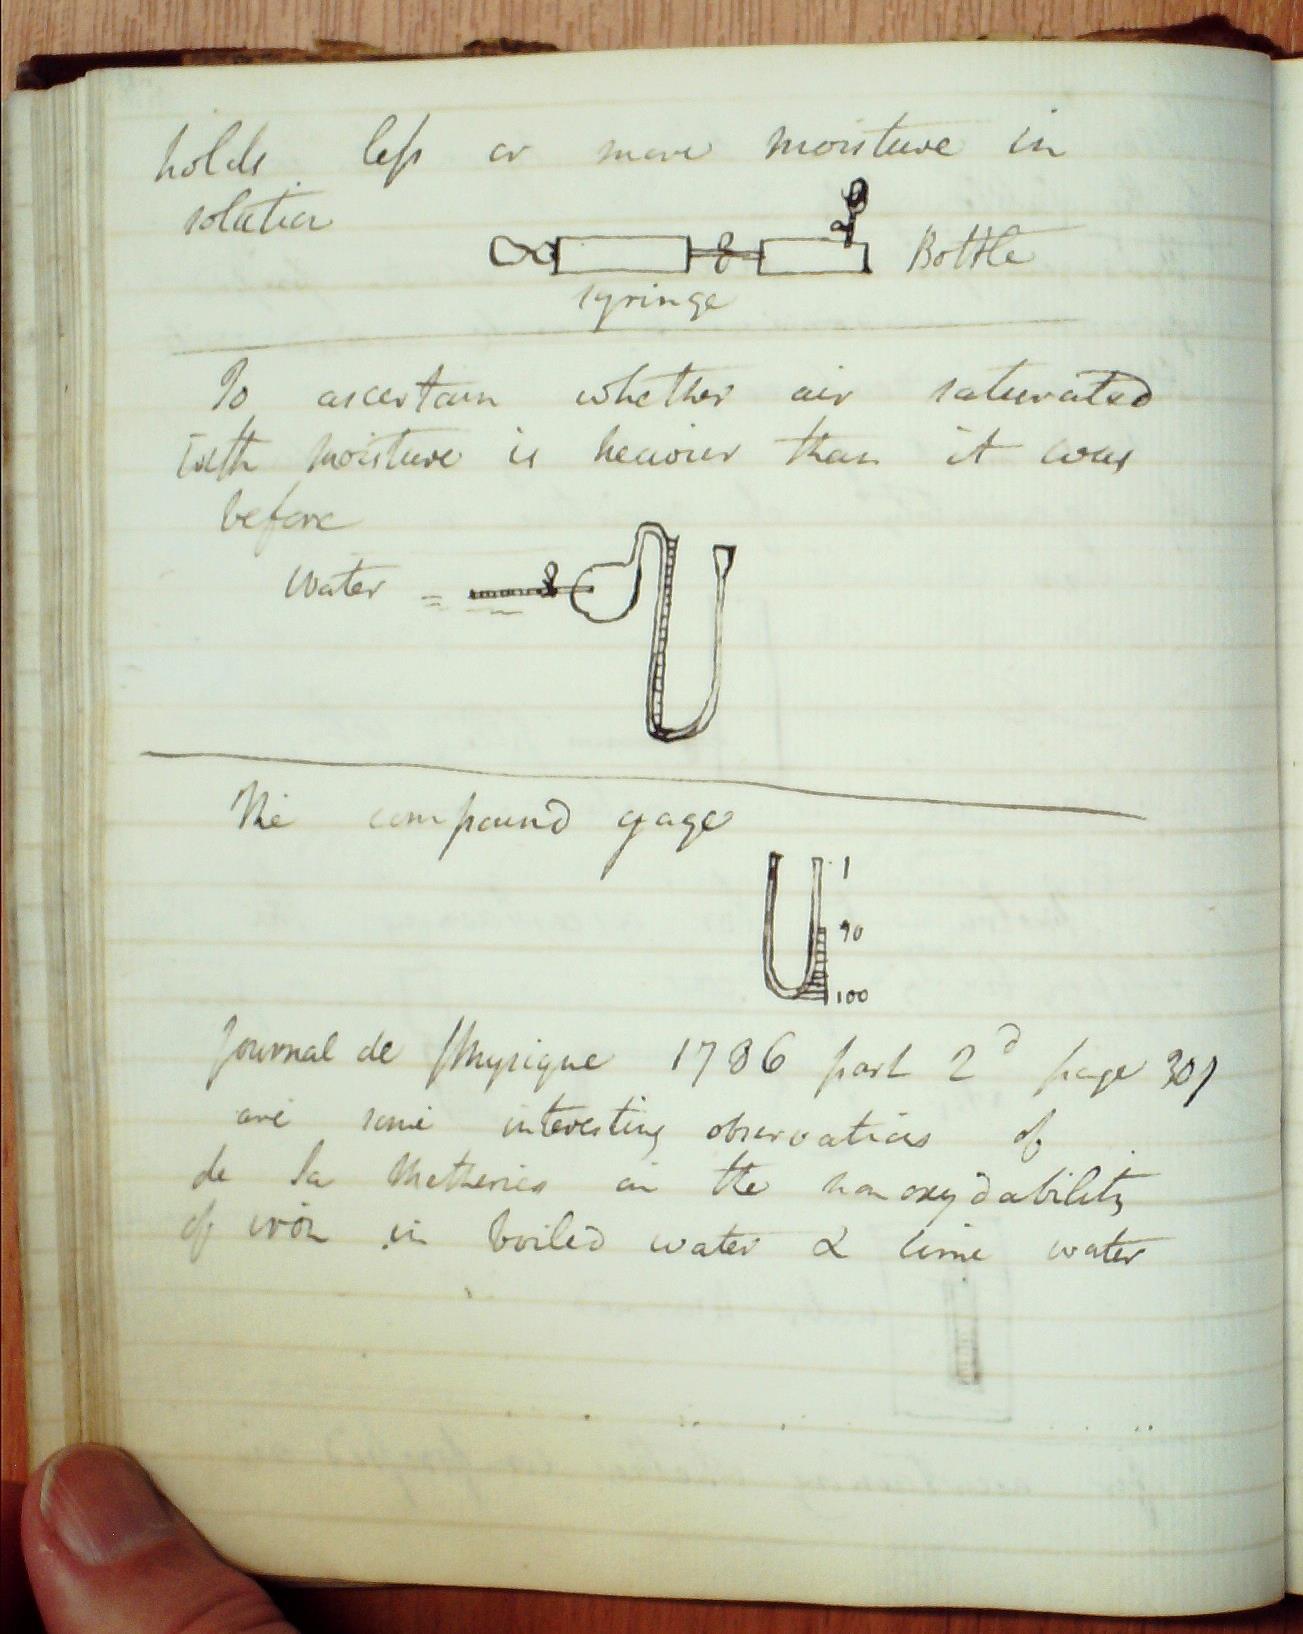 holds less or more moisture in
solution
Bottle
syringe
To ascertain whether air saturated
with moisture is heavier than it was
before
Water =
The compound gage
1
90
100
Journal de Physique 1786 part 2d page 301
are some interesting observations of
de la Metherie on the non oxydability
of iron in boiled water & lime water